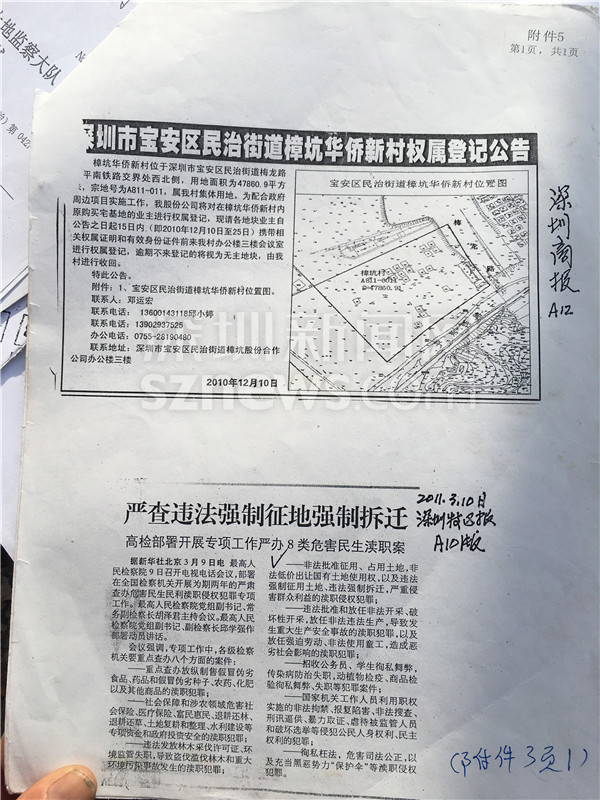 土地监察大队
附件5
第1页，共1页
深圳市宝安区民治街道樟坑华侨新村权属登记公告
樟坑华侨新村位于深圳市宝安区民治街道梅龙路
平南铁路交界处西北侧，用地面积为47860.9平方
，宗地号为A811-0011，属我村集体用地。为配合政府
周边项目实施工作，我股份公司将对在樟坑华侨新村内
原购买宅基地的业主进行权属登记，现请各地块业主自
公告之日起15日内（即2010年12月10日至25日）携带相
关权属证明和有效身份证件前来我村办公楼三楼会议室
进行权属登记，逾期不来登记的将视为无主地块，由我
村进行收回。
特此公告。
附件：1、宝安区民治街道樟坑华侨新村位置图。
联系人：邓运宏
联系电话：13600143118邱小婷
联系电话：13902937525
办公电话：0755-28190480
联系地址：深圳市宝安区民治街道樟坑股份合作
公司办公楼三楼
2010年12月10日
宝安区民治街道樟坑华侨新村位置图
樟坑村
A811-0011
47860.91
深圳商报
A12
深圳新闻网
sznews.com
严查违法强制征地强制拆迁
高检部署开展专项工作严办8类危害民生渎职案
2011.3.10日
深圳特区报
A10版
据新华社北京3月9日电 最高人
民检察院9日召开电视电话会议，部署
在全国检察机关开展为期两年的严肃
查办危害民生民利渎职侵权犯罪专项
工作。最高人民检察院党组副书记、常
务副检察长胡泽君主持会议，最高人民
检察院党组副书记、副检察长邱学强作
部署动员讲话。
会议强调，专项工作中，各级检察
机关要重点查办八个方面的案件：
——重点查办放纵制售假冒伪劣
食品、药品和假冒伪劣种子、农药、化肥
以及其他商品的渎职犯罪；
——社会保障和涉农领域危害社
会保险、医疗保险、富民惠民、退耕还林、
退耕还草、土地复耕和整理、水利建设等
专项资金和政府投资安全的渎职犯罪；
——违法发放林木采伐许可证、环
境监管失职，导致盗伐滥伐林木和重大
环境污染事故发生的渎职犯罪；
——非法批准征用、占用土地，非
法低价出让国有土地使用权，以及违法
强制征用土地、违法强制拆迁，严重侵
害群众利益的渎职侵权犯罪；
——违法批准和放任非法开采、破
坏性开采，放任非法违法生产，导致发
生重大生产安全事故的渎职犯罪，以及
放任强迫劳动、非法使用童工，造成恶
劣社会影响的渎职犯罪；
——招收公务员、学生徇私舞弊，
传染病防治失职，动植物检疫、商品检
验徇私舞弊、失职等犯罪案件；
——国家机关工作人员利用职权
实施的非法拘禁、报复陷害、非法搜查、
刑讯逼供、暴力取证、虐待被监管人员
和破坏选举等侵犯公民人身权利、民主
权利的犯罪；
——徇私枉法，危害司法公正，以
及充当黑恶势力“保护伞”等渎职侵权
犯罪。
（附件3页1）